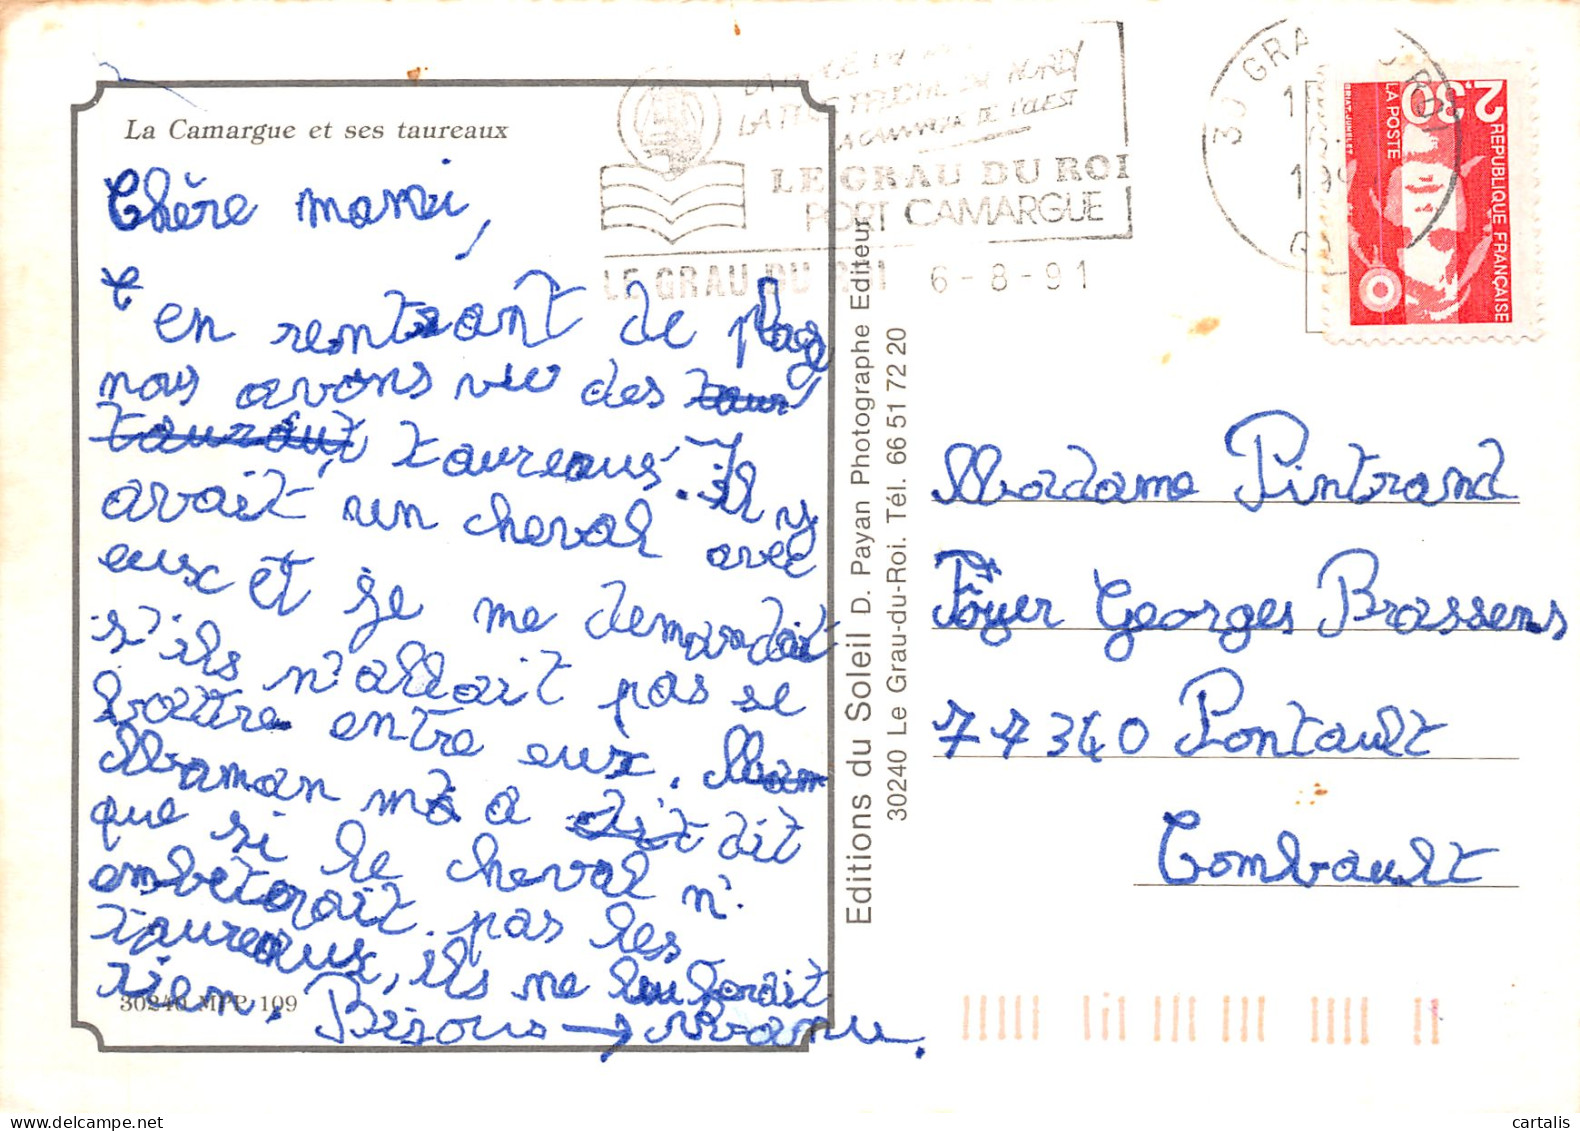 La Camargue et ses taureaux
Chère mami,
en rentrant de plage
nous avons vu des taur
tauraut taureaux. Il y
avait un cheval avec
eux et je me demandait
s'ils n'allait pas se
battre entre eux. Mam
Maman m'a dit dit
que si le cheval n'
embêtarait pas les
taureaux, ils ne lui ferait
rien. Bisous → Manu.
30240 MPP 109
Editions du Soleil D. Payan Photographe Editeur
30240 Le Grau-du-Roi. Tél. 66 51 72 20
LA CAMARGUE DE L'OUEST
LE GRAU DU ROI
PORT CAMARGUE
LE GRAU DU ROI 6-8-91
30 GRAU DU ROI
2,30
LA POSTE
REPUBLIQUE FRANÇAISE
BRIAT-JUMELET
Madame Pintrand
Foyer Georges Brassens
77340 Pontault
Combault
cartalis